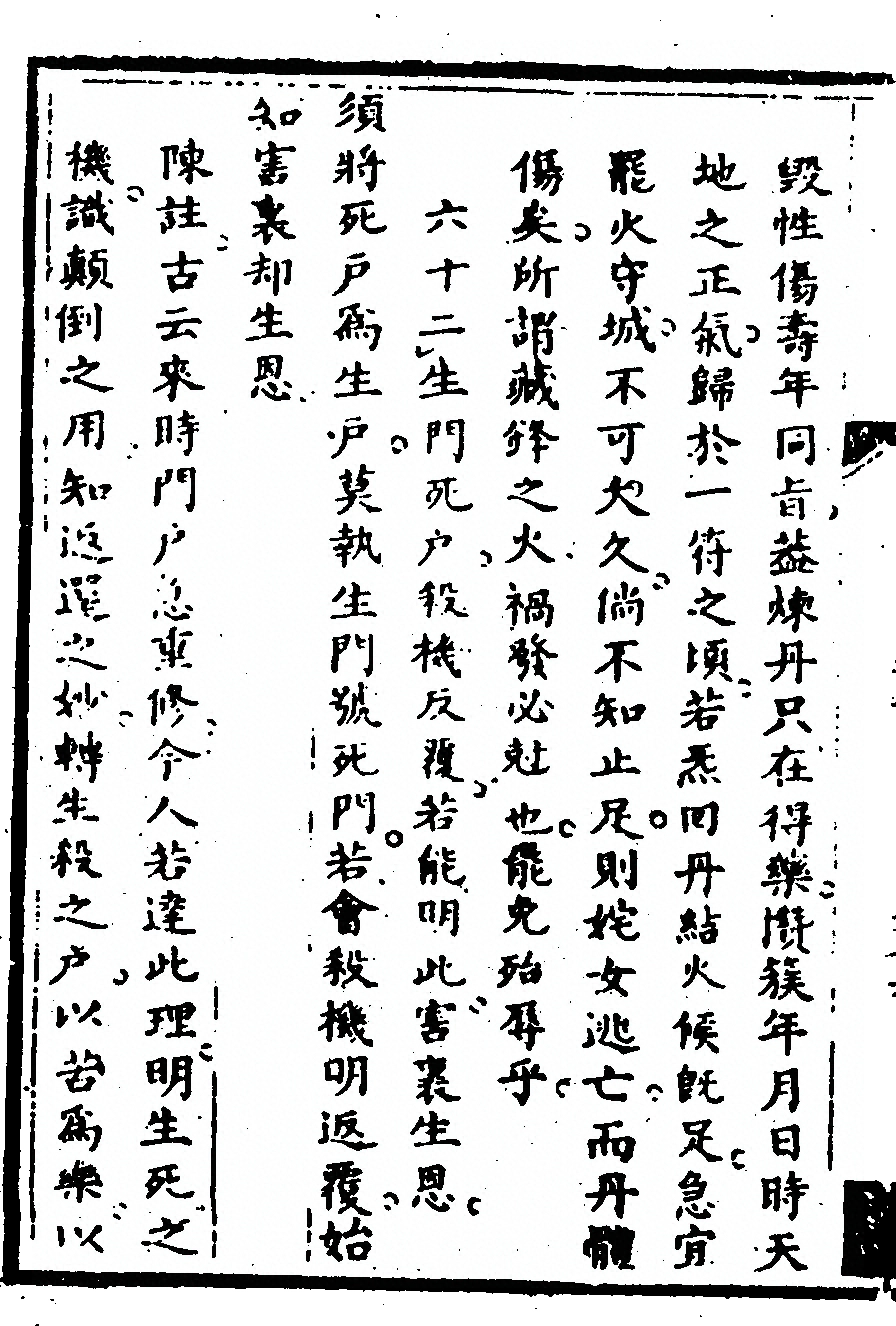 毀性傷壽年同旨蓋煉丹只在得藥攢簇年月日時天
地之正氣歸於一符之頃若炁回丹結火候既足急宜
罷火守城不可火久倘不知止足則姹女逃亡而丹體
傷矣所謂藏鋒之火禍發必尅也能免殆辱乎
六十二生門死户殺機反覆若能明此害裏生恩
須將死户爲生户莫執生門號死門若會殺機明返覆始
知害裏却生恩
陳註古云來時門户急重修今人若達此理明生死之
機識顛倒之用知返還之妙轉生殺之户以苦爲樂以